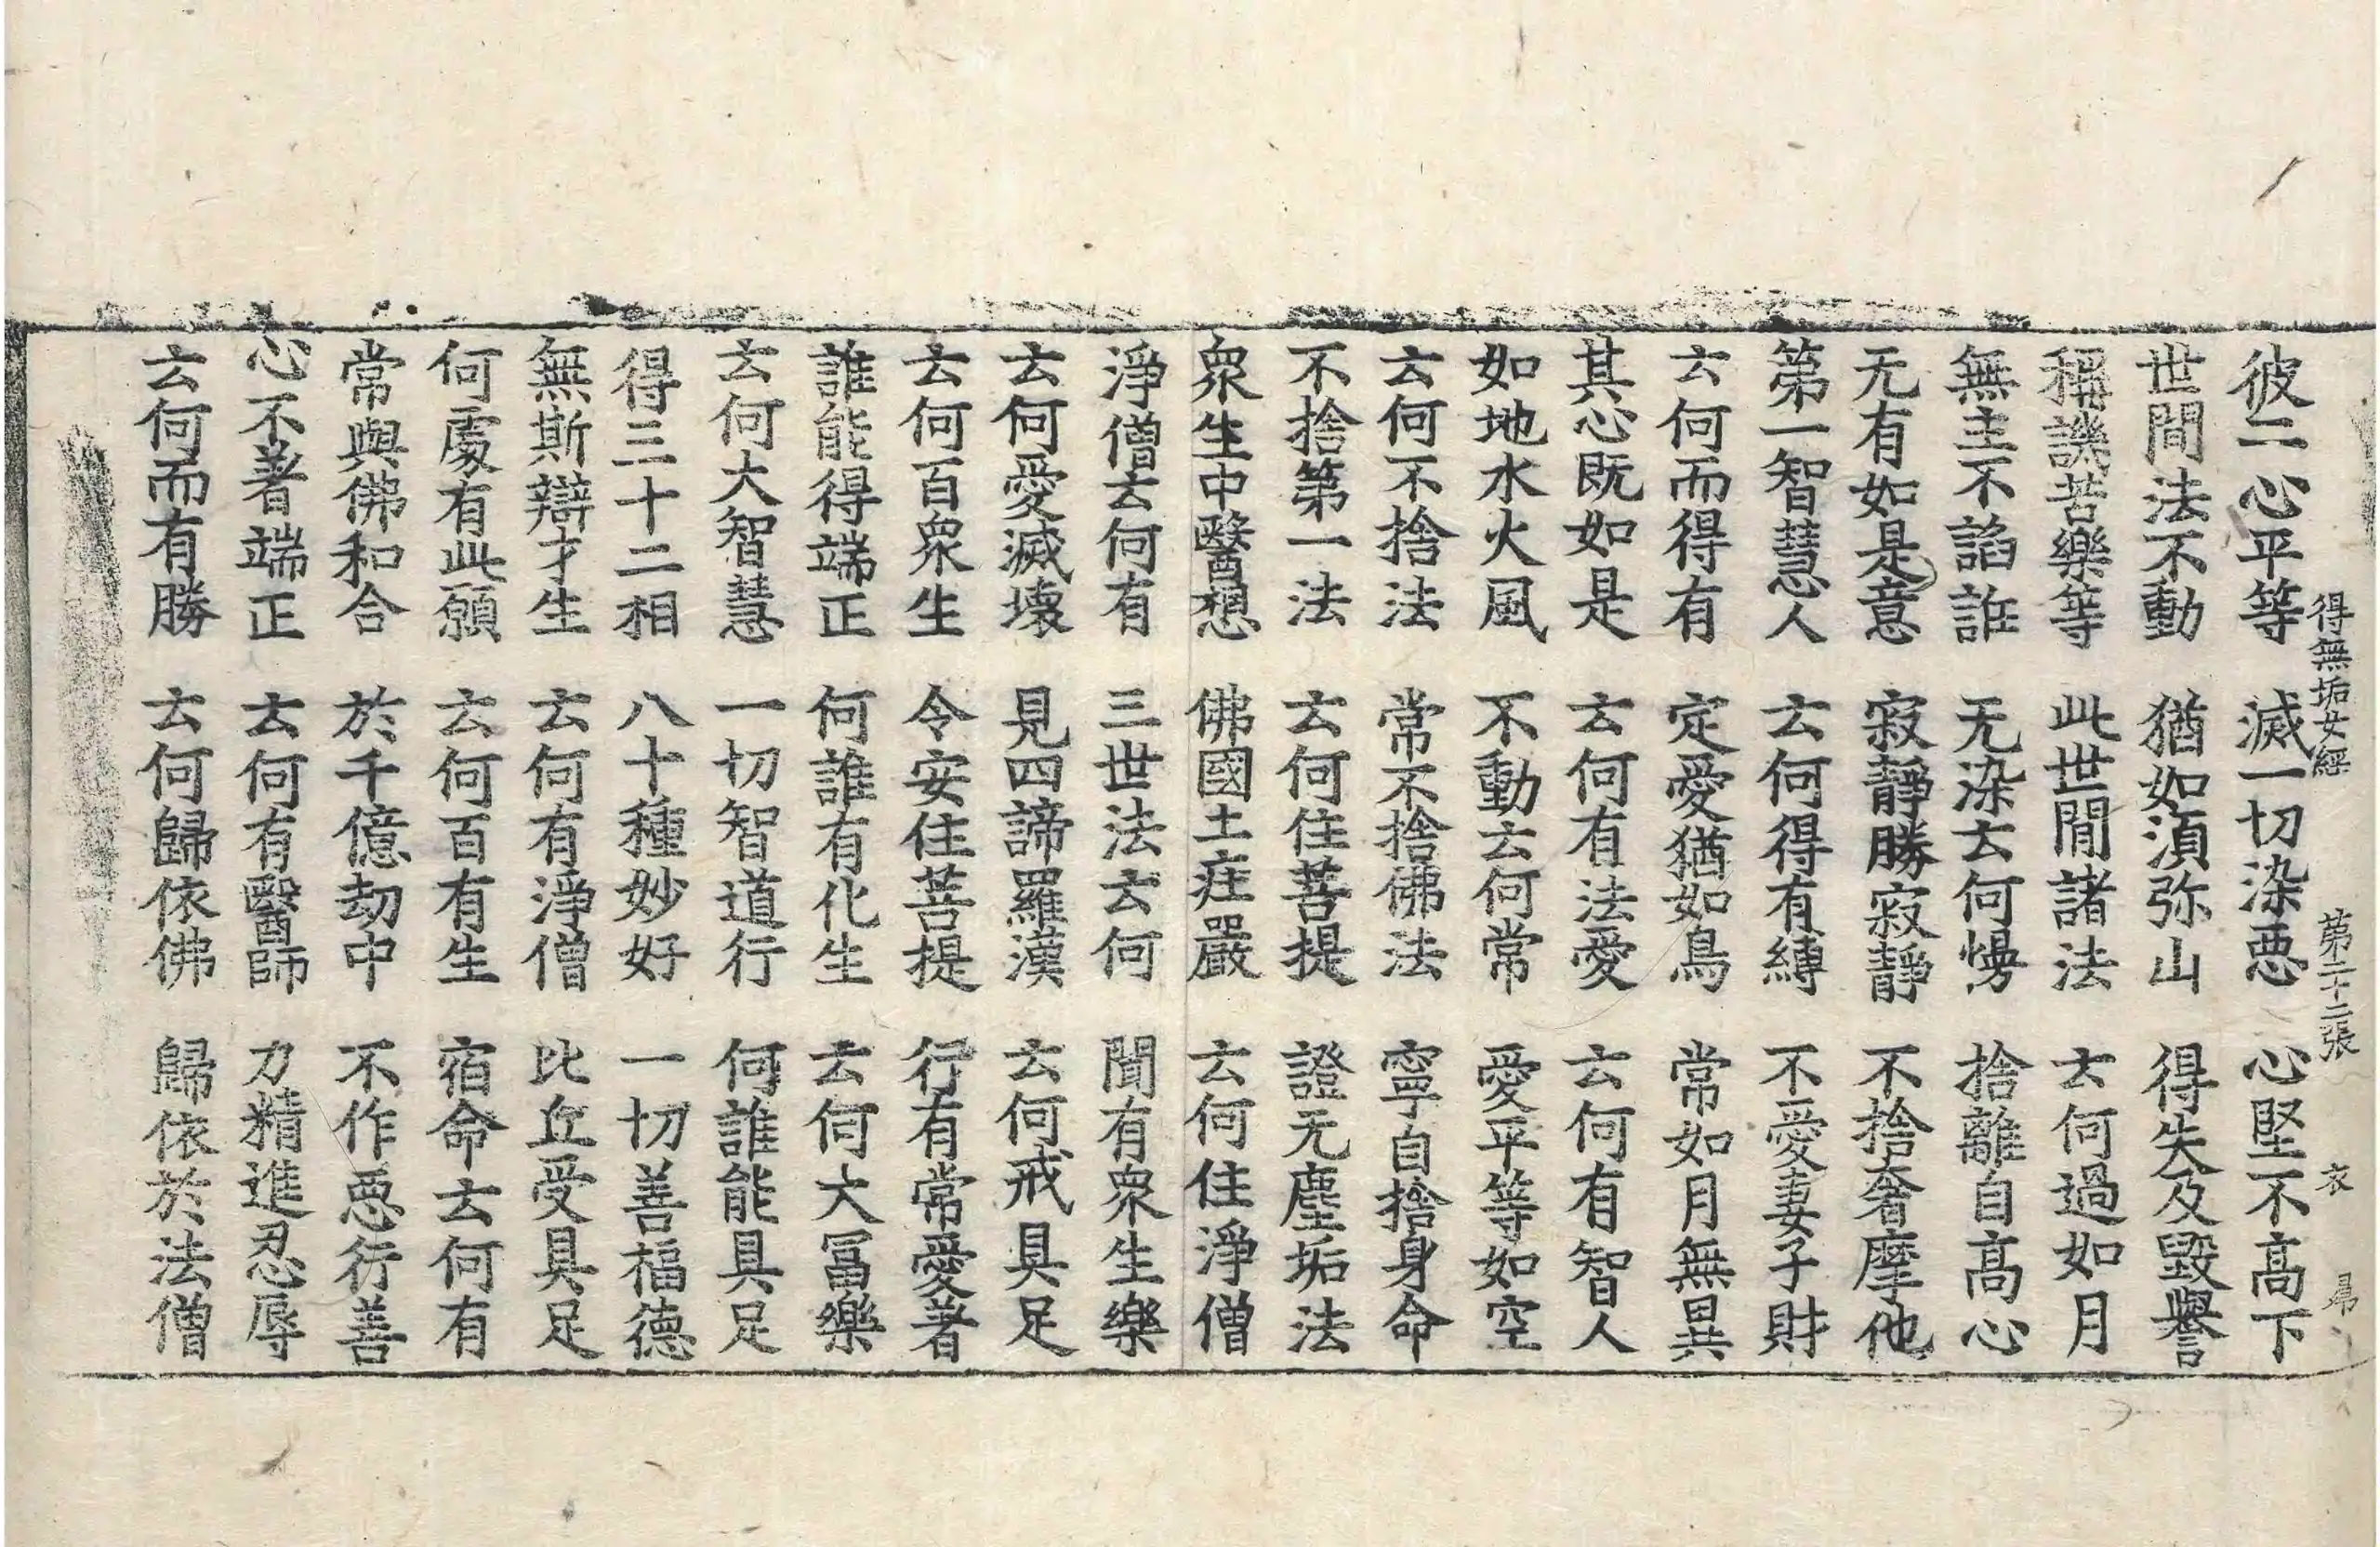 得無垢女經 第二十二張 衣
彼二心平等 滅一切染惡 心堅不高下
世間法不動 猶如湏弥山 得失及毀譽
稱譏苦樂等 此世間諸法 去何過如月
無主不諂誑 无染去何慢 捨離自高心
无有如是意 寂靜勝寂靜 不捨奢摩他
第一智慧人 去何得有縛 不愛妻子財
去何而得有 定愛猶如鳥 常如月無異
其心既如是 去何有法愛 去何有智人
如地水火風 不動去何常 愛平等如空
去何不捨法 常不捨佛法 寧自捨身命
不捨第一法 去何住菩提 證无塵垢法
衆生中醫想 佛國土疰嚴 去何住淨僧
淨僧去何有 三世法去何 聞有衆生樂
去何愛滅壞 見四諦羅漢 去何戒具足
去何百衆生 令安住菩提 行有常愛著
誰能得端正 何誰有化生 去何大冨樂
去何大智慧 一切智道行 何誰能具足
得三十二相 八十種妙好 一切善福德
無斯辯才生 去何有淨僧 比丘受具足
何處有此願 去何百有生 宿命去何有
常與佛和合 於千億劫中 不作惡行善
心不著端正 去何有醫師 力精進忍辱
去何而有勝 去何歸依佛 歸依於法僧